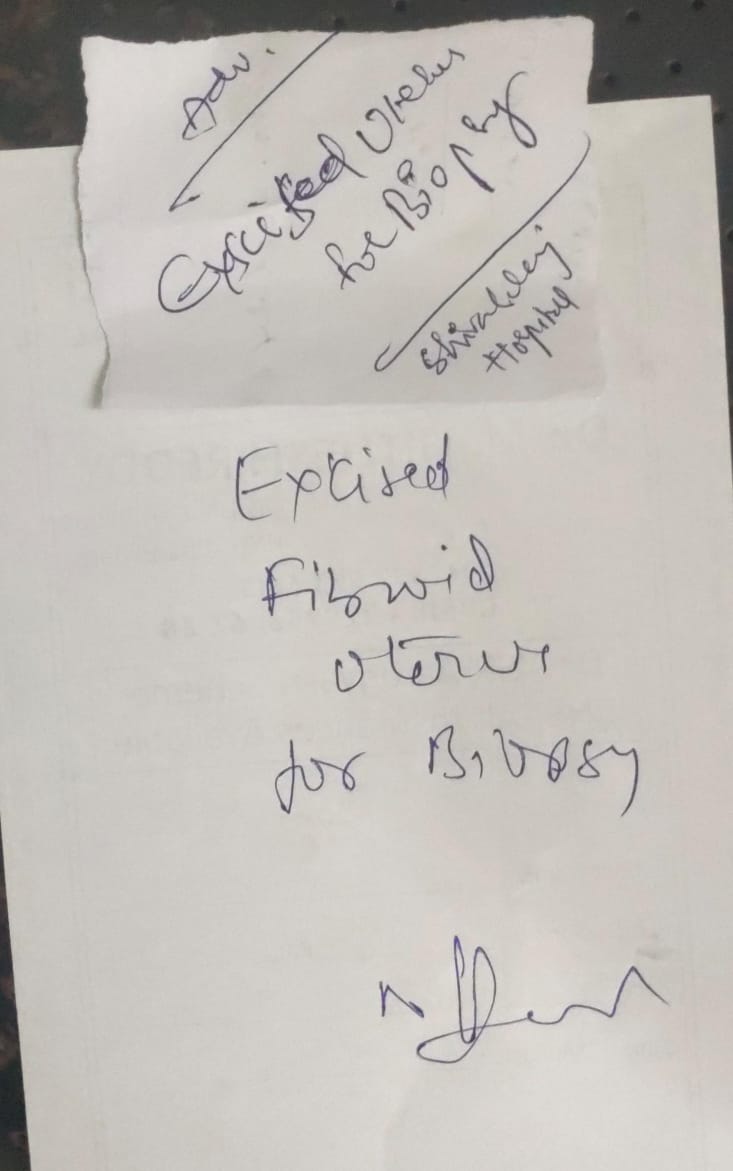 Adv.
Excised Uterus
for Biopsy
Hospital
Excised
Fibroid
Uterus
for Biopsy